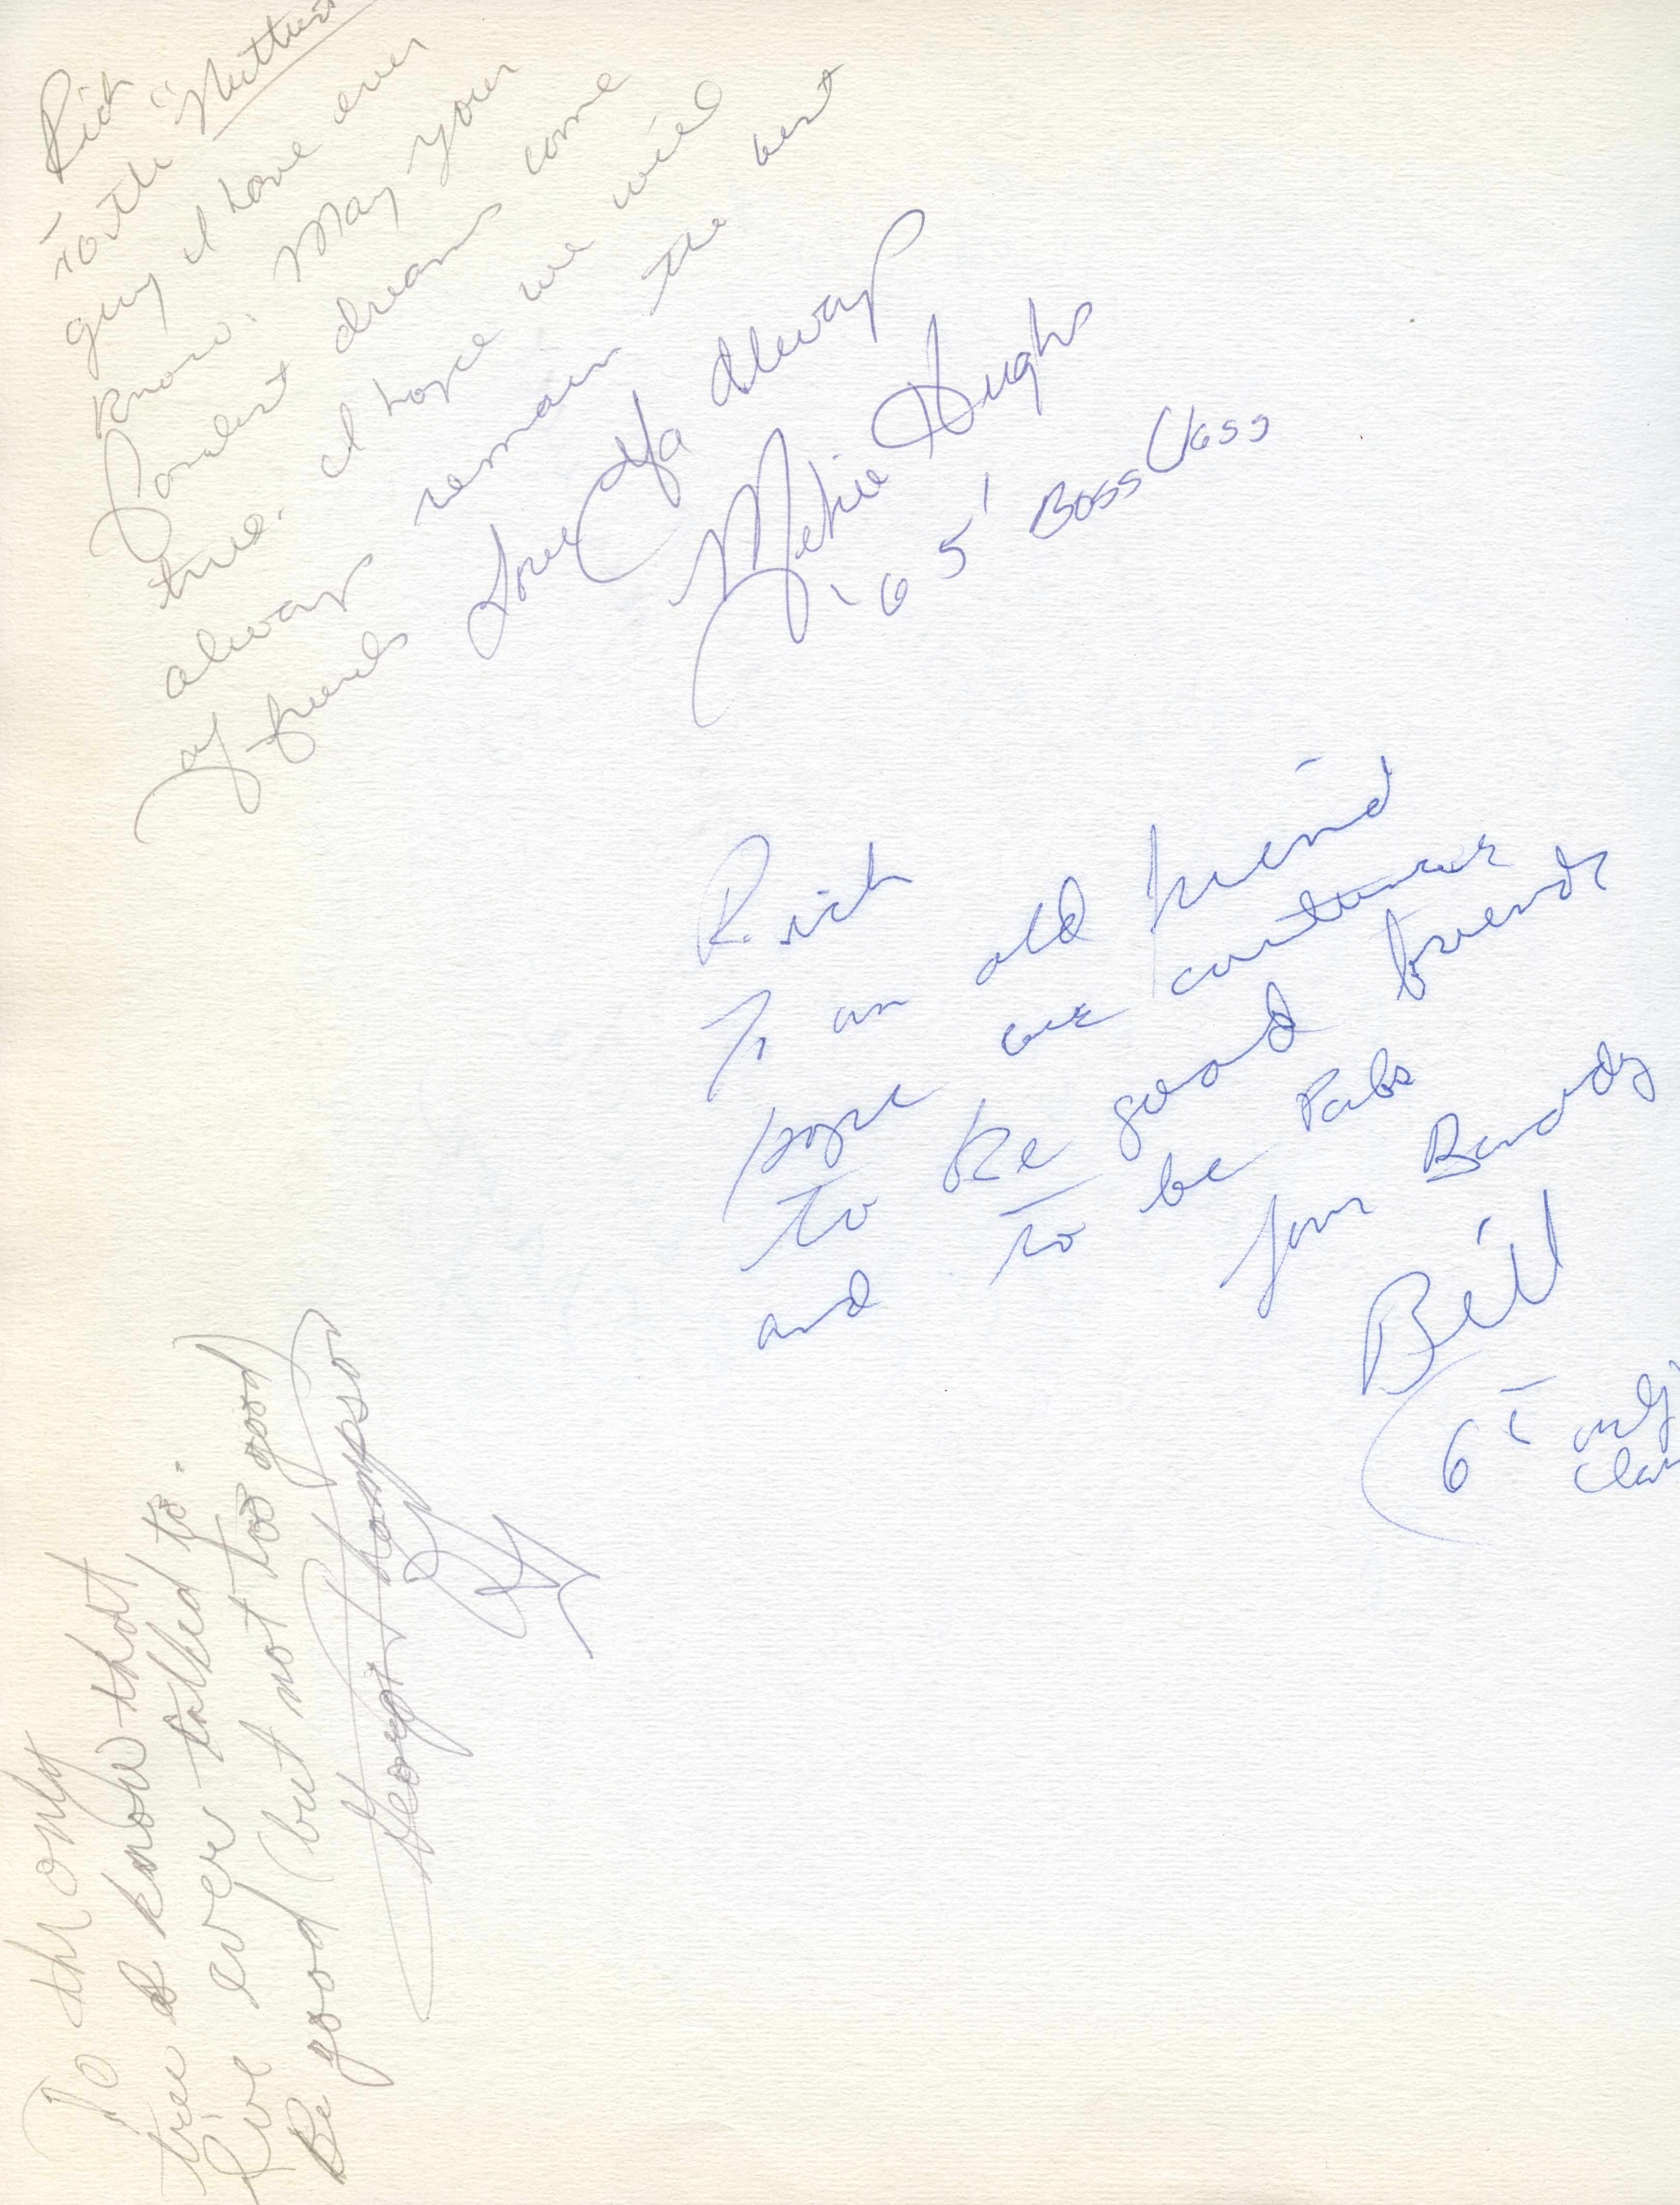 Rich
To the "Nuttiest
guy I have ever
know. May your
fondest dreams come
true. I hope we will
always remain the best
of friends
Love Ya Always
Mekie Hughs
'65' Boss Class
Rich
To an old friend
hope we continue
to be good friends
and to be Pals
your Buddy
Bill
6 only
Clas
To the only
tree I know that
I've ever talked to.
Be good (but not too good)
George Thompson